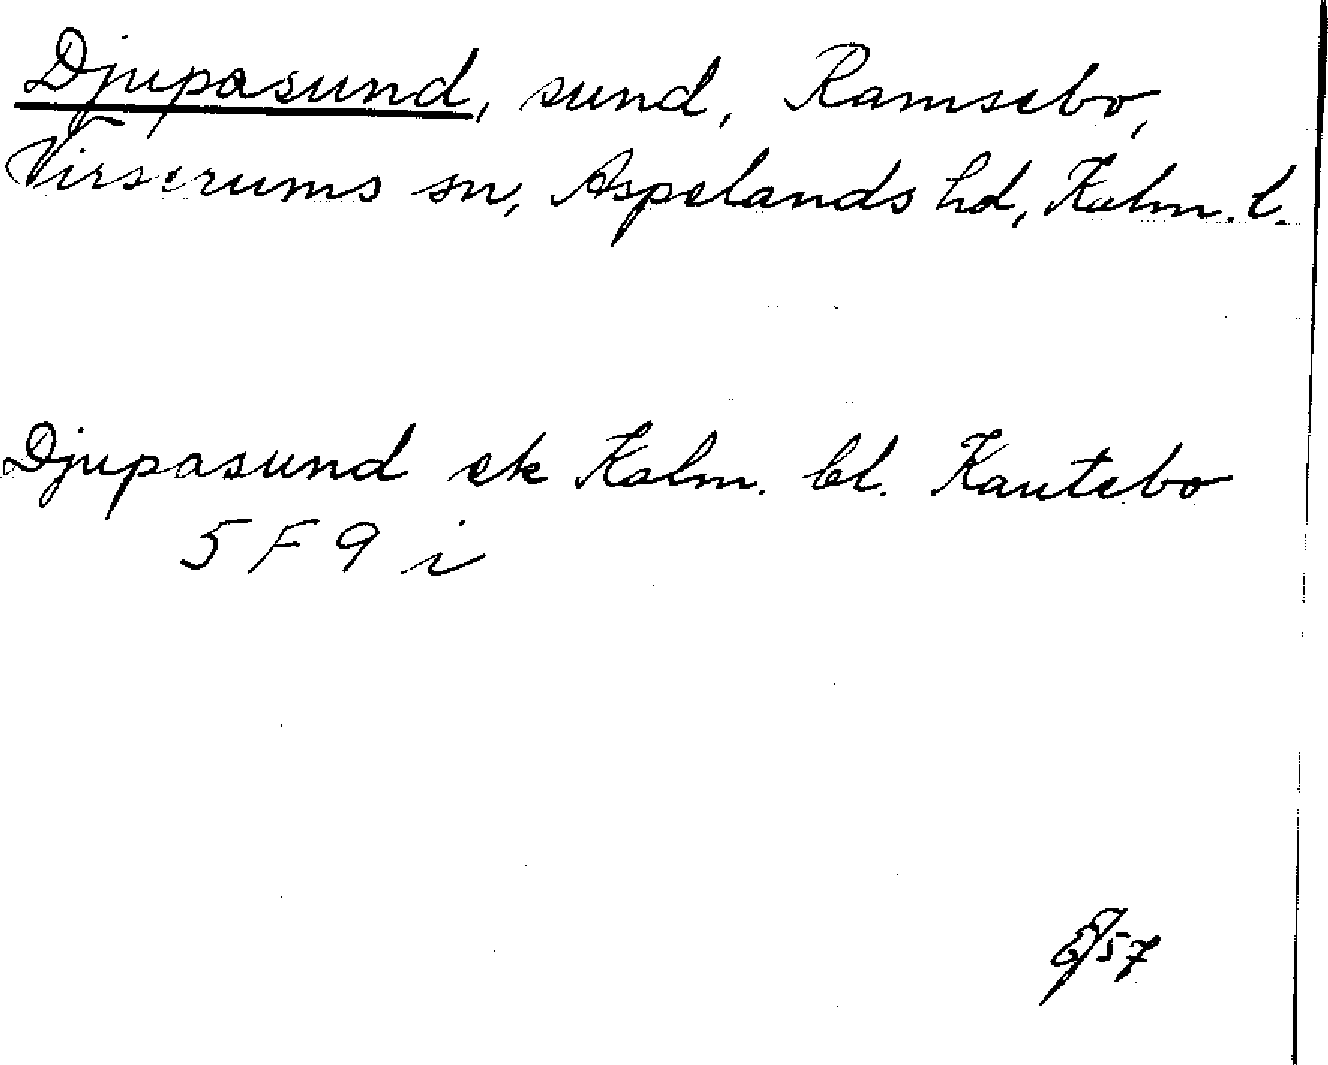 Djupasund, sund, Ramsebo,
Virserums sn, Aspelands hd, Kalm. l.
Djupasund ek Kalm. bl. Kautebo
5 F 9 i